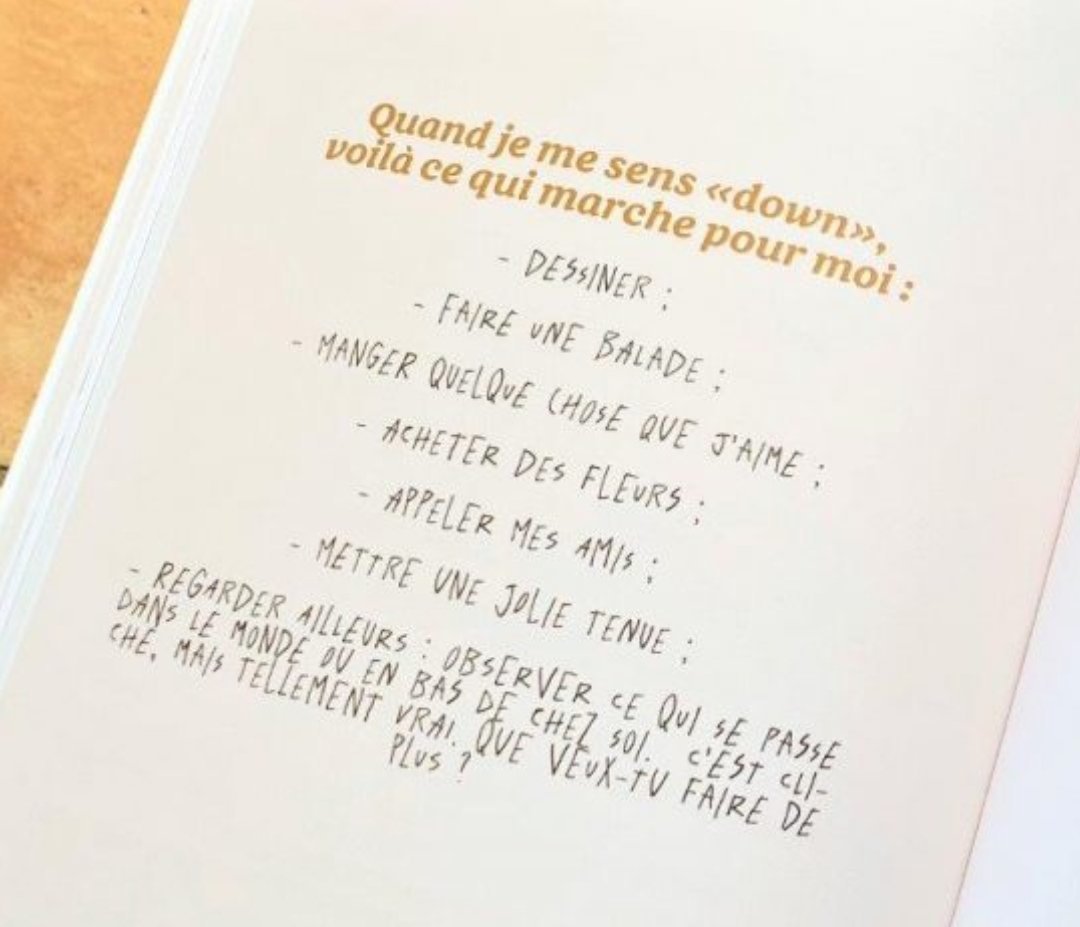 Quand je me sens «down»,
voilà ce qui marche pour moi :
- DESSINER ;
- FAIRE UNE BALADE ;
- MANGER QUELQUE CHOSE QUE J'AIME ;
- ACHETER DES FLEURS ;
- APPELER MES AMIS ;
- METTRE UNE JOLIE TENUE ;
- REGARDER AILLEURS : OBSERVER CE QUI SE PASSE
DANS LE MONDE OU EN BAS DE CHEZ SOI. C'EST CLI-
CHÉ, MAIS TELLEMENT VRAI. QUE VEUX-TU FAIRE DE
PLUS ?